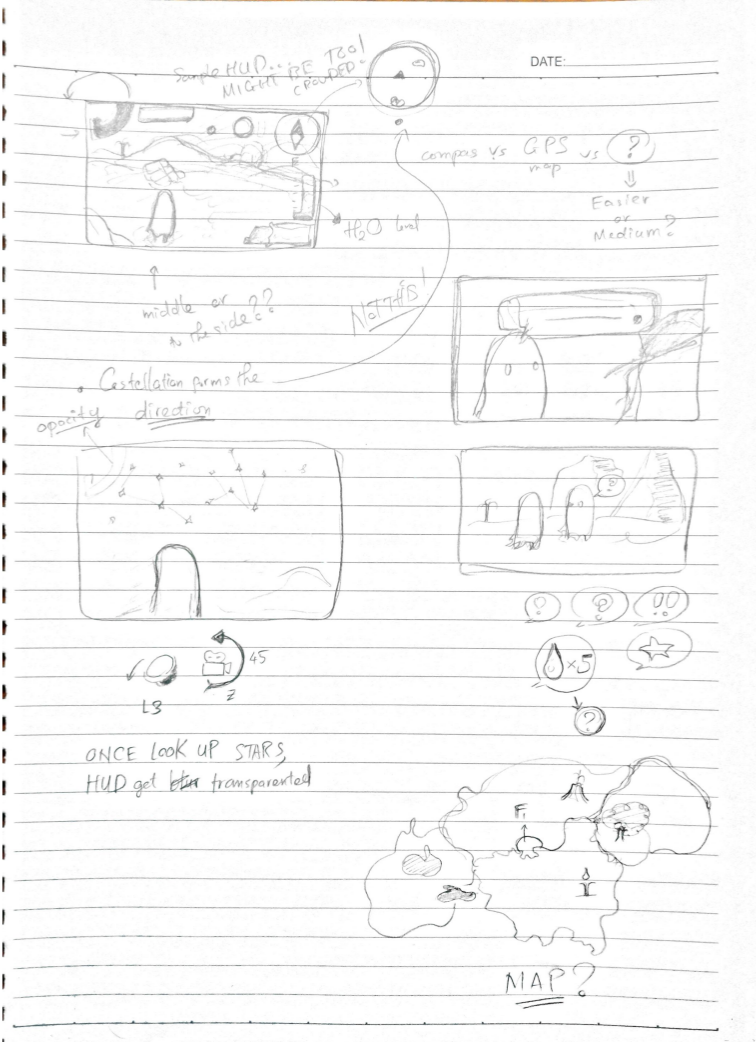 DATE:
Sample HUD... MIGHT BE TOO CROWDED!
compas vs GPS map vs ?
Easier
or
Medium?
H₂O level
middle or
to the side??
NOT THIS!
Costellation forms the
direction
opacity
45
Z
L3
? ? !!
×5
?
ONCE LOOK UP STARS,
HUD get transparented
F,
MAP?